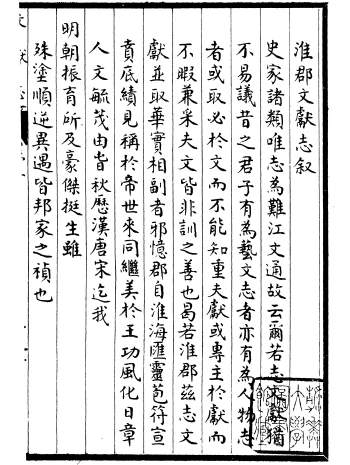 淮郡文獻志叙
史家諸類唯志為難江文通故云爾若志文獻猶
不易議昔之君子有為藝文志者亦有為人物志
者或取必於文而不能知重夫獻或專主於獻而
不暇兼采夫文皆非訓之善也曷若淮郡兹志文
獻並取華實相副者邪憶郡自淮海匯靈苞符宣
賁底績見稱於帝世來同繼美於王功風化日章
人文毓茂由昔秋歷漢唐宋迄我
明朝振育所及豪傑挺生雖
殊塗順逆異遇皆邦家之禎也